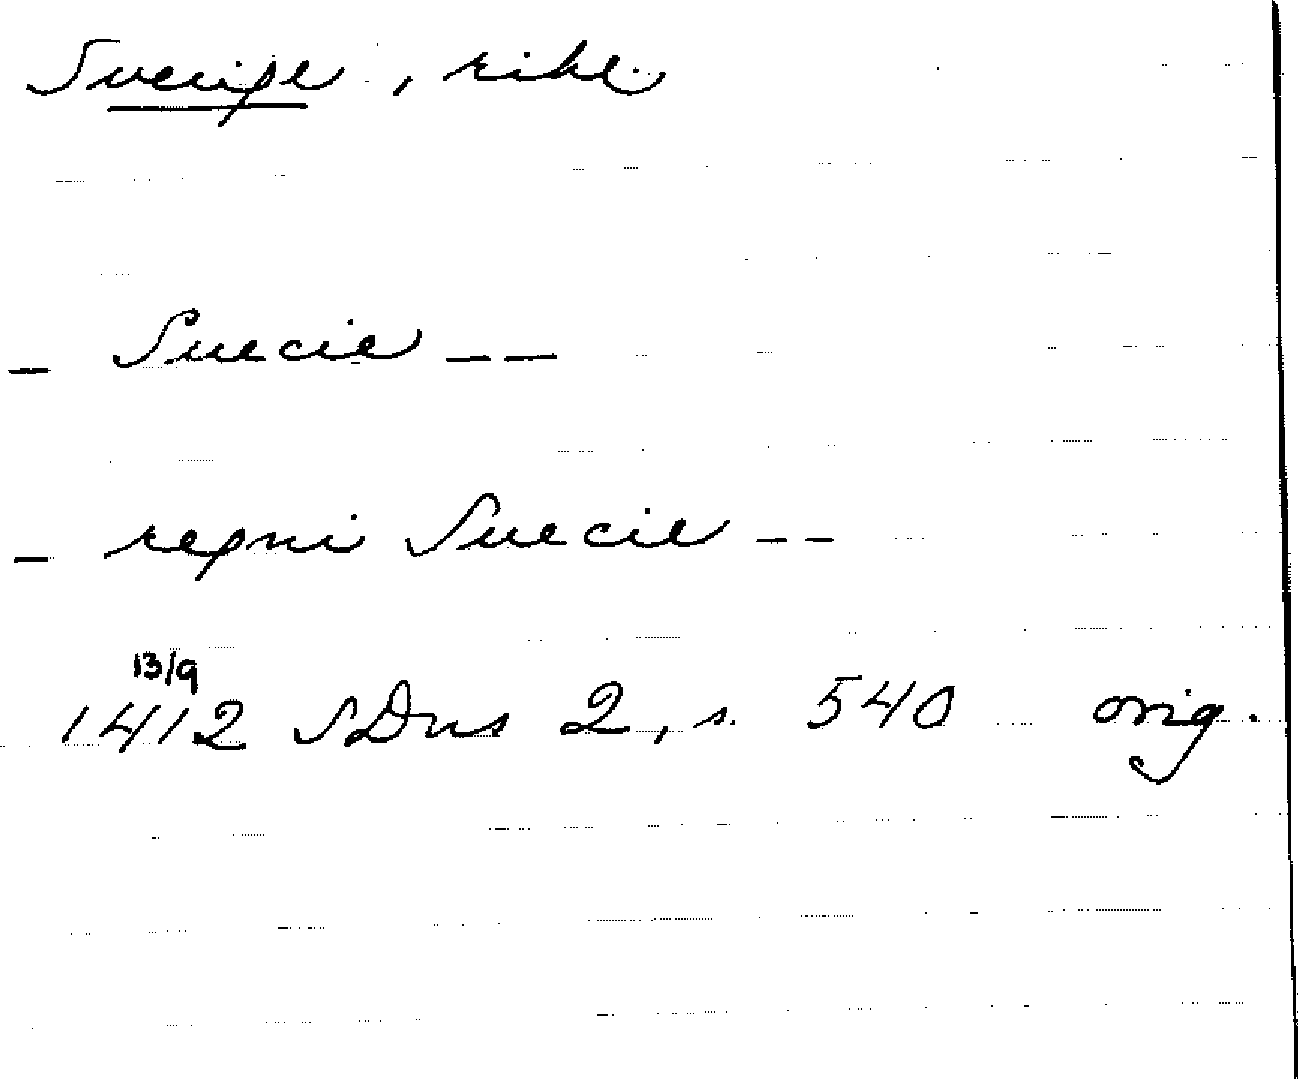 Sverige, riket.
– Suecie – –
– regni Suecie – –
13/9
1412 SDns 2, s. 540 orig.